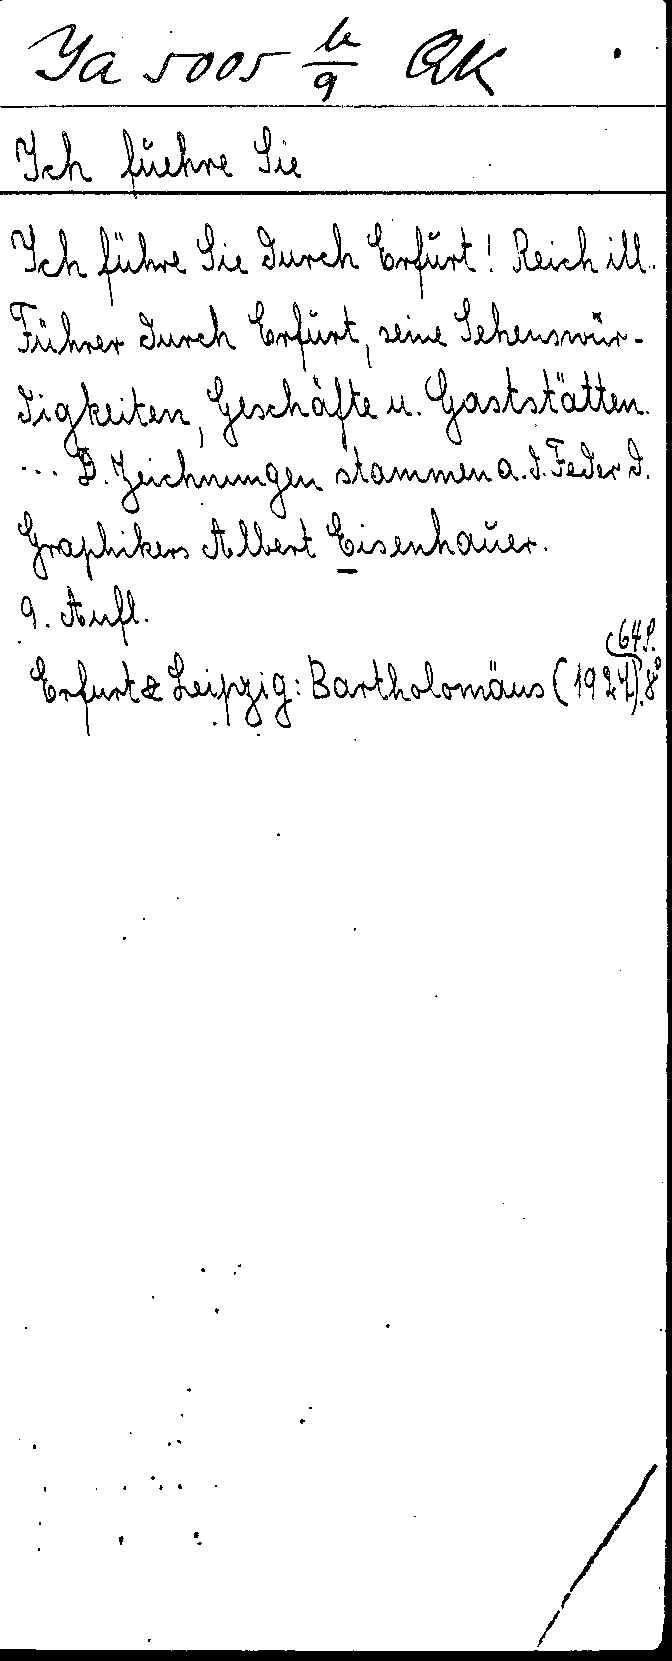 Ya 5005 b/9 QK
Ich fuehre Sie
Ich führe Sie durch Erfurt! Reich ill.
Führer durch Erfurt, seine Sehenswür-
digkeiten, Geschäfte u. Gaststätten.
... D. Zeichnungen stammen a. d. Feder d.
Graphikers Albert Eisenhauer.
9. Aufl.
64 S.
Erfurt & Leipzig: Bartholomäus (1927). 8°